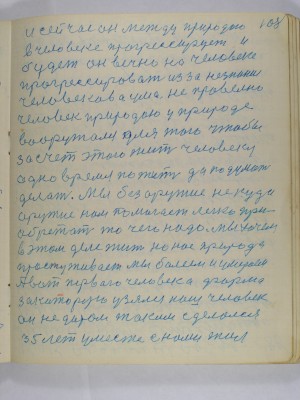 и сейчас он между природою 108
в человеке прогрессирует и
будет он вечно но человеке
прогрессироват из за незнание
человекава ума. не правелно
человек природою у природе
вооружался для того чтобы
за счет этого жит человеку
одно время пожит да подумат
делат. Мы без оружие некуда
оружие нам помогает легко при-
обретат то чего надо. Мы хочем
в этом деле жит но нас природа
простуживает мы болеем и умираем
А вот первого человека форма
за которого узялся наш человек
он не даром таким сделался
35 лет уместе с ными жил